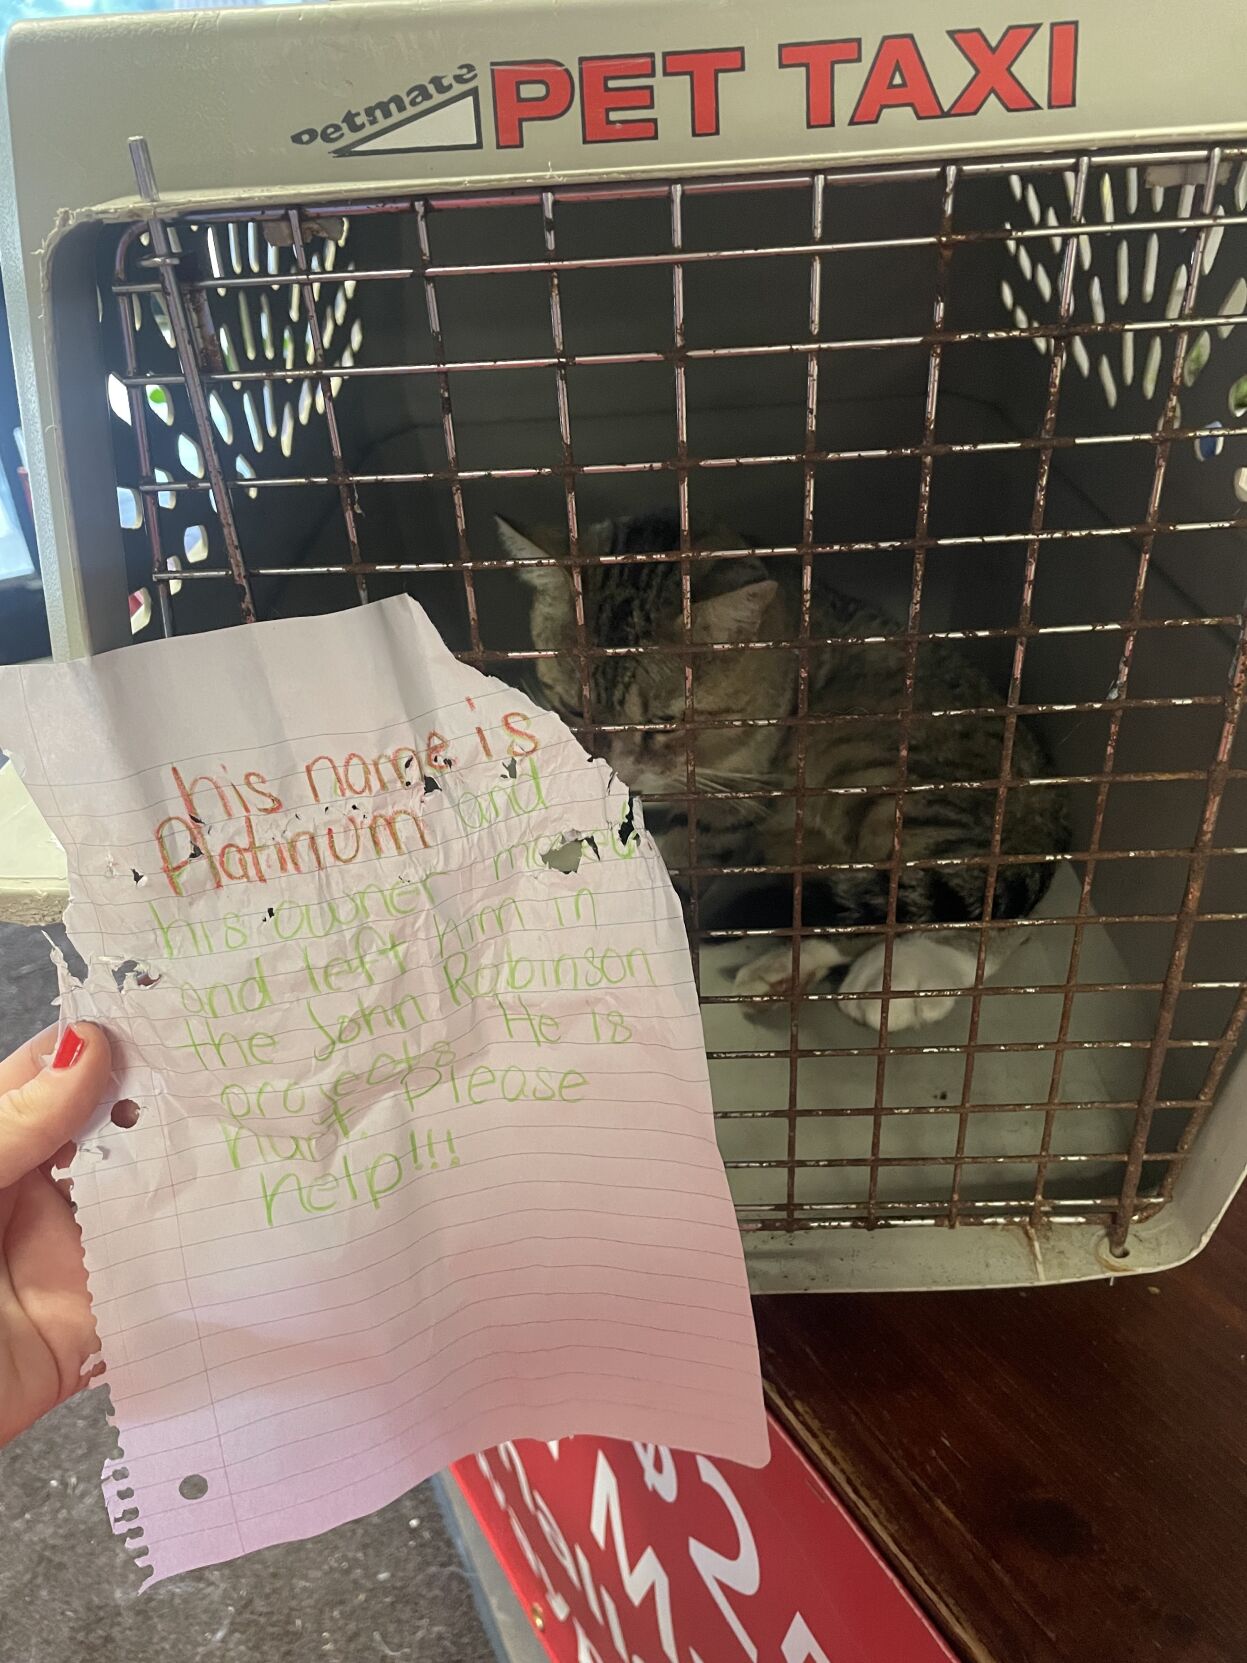 Petmate PET TAXI
his name is
Platinum and
his owner moved
and left him in
the John Robinson
projects. He is
hurt. Please
help!!!